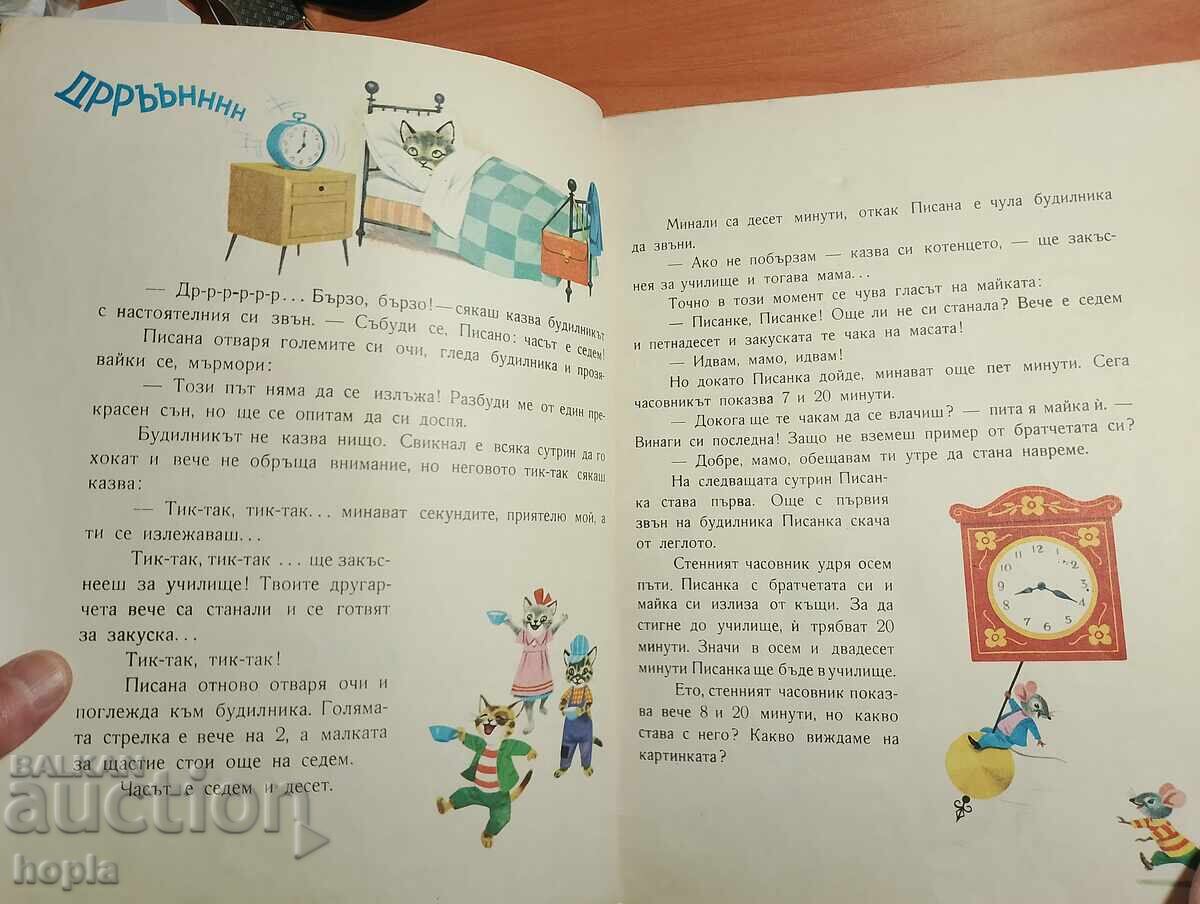 Дрръънннн
— Др-р-р-р-р-р... Бързо, бързо! — сякаш казва будилникът
с настоятелния си звън. — Събуди се, Писано: часът е седем!
Писана отваря големите си очи, гледа будилника и прозя-
вайки се, мърмори:
— Този път няма да се излъжа! Разбуди ме от един пре-
красен сън, но ще се опитам да си доспя.
Будилникът не казва нищо. Свикнал е всяка сутрин да го
хокат и вече не обръща внимание, но неговото тик-так сякаш
казва:
— Тик-так, тик-так... минават секундите, приятелю мой, а
ти се излежаваш...
Тик-так, тик-так ... ще закъс-
нееш за училище! Твоите другар-
чета вече са станали и се готвят
за закуска...
Тик-так, тик-так!
Писана отново отваря очи и
поглежда към будилника. Голяма-
та стрелка е вече на 2, а малката
за щастие стои още на седем.
Часът е седем и десет.
Минали са десет минути, откак Писана е чула будилника
да звъни.
— Ако не побързам — казва си котенцето, — ще закъс-
нея за училище и тогава мама...
Точно в този момент се чува гласът на майката:
— Писанке, Писанке! Още ли не си станала? Вече е седем
и петнадесет и закуската те чака на масата!
— Идвам, мамо, идвам!
Но докато Писанка дойде, минават още пет минути. Сега
часовникът показва 7 и 20 минути.
— Докога ще те чакам да се влачиш? — пита я майка ѝ. —
Винаги си последна! Защо не вземеш пример от братчетата си?
— Добре, мамо, обещавам ти утре да стана навреме.
На следващата сутрин Писан-
ка става първа. Още с първия
звън на будилника Писанка скача
от леглото.
Стенният часовник удря осем
пъти. Писанка с братчетата си и
майка си излиза от къщи. За да
стигне до училище, ѝ трябват 20
минути. Значи в осем и двадесет
минути Писанка ще бъде в училище.
Ето, стенният часовник показ-
ва вече 8 и 20 минути, но какво
става с него? Какво виждаме на
картинката?
BALKAN
auction
hopla